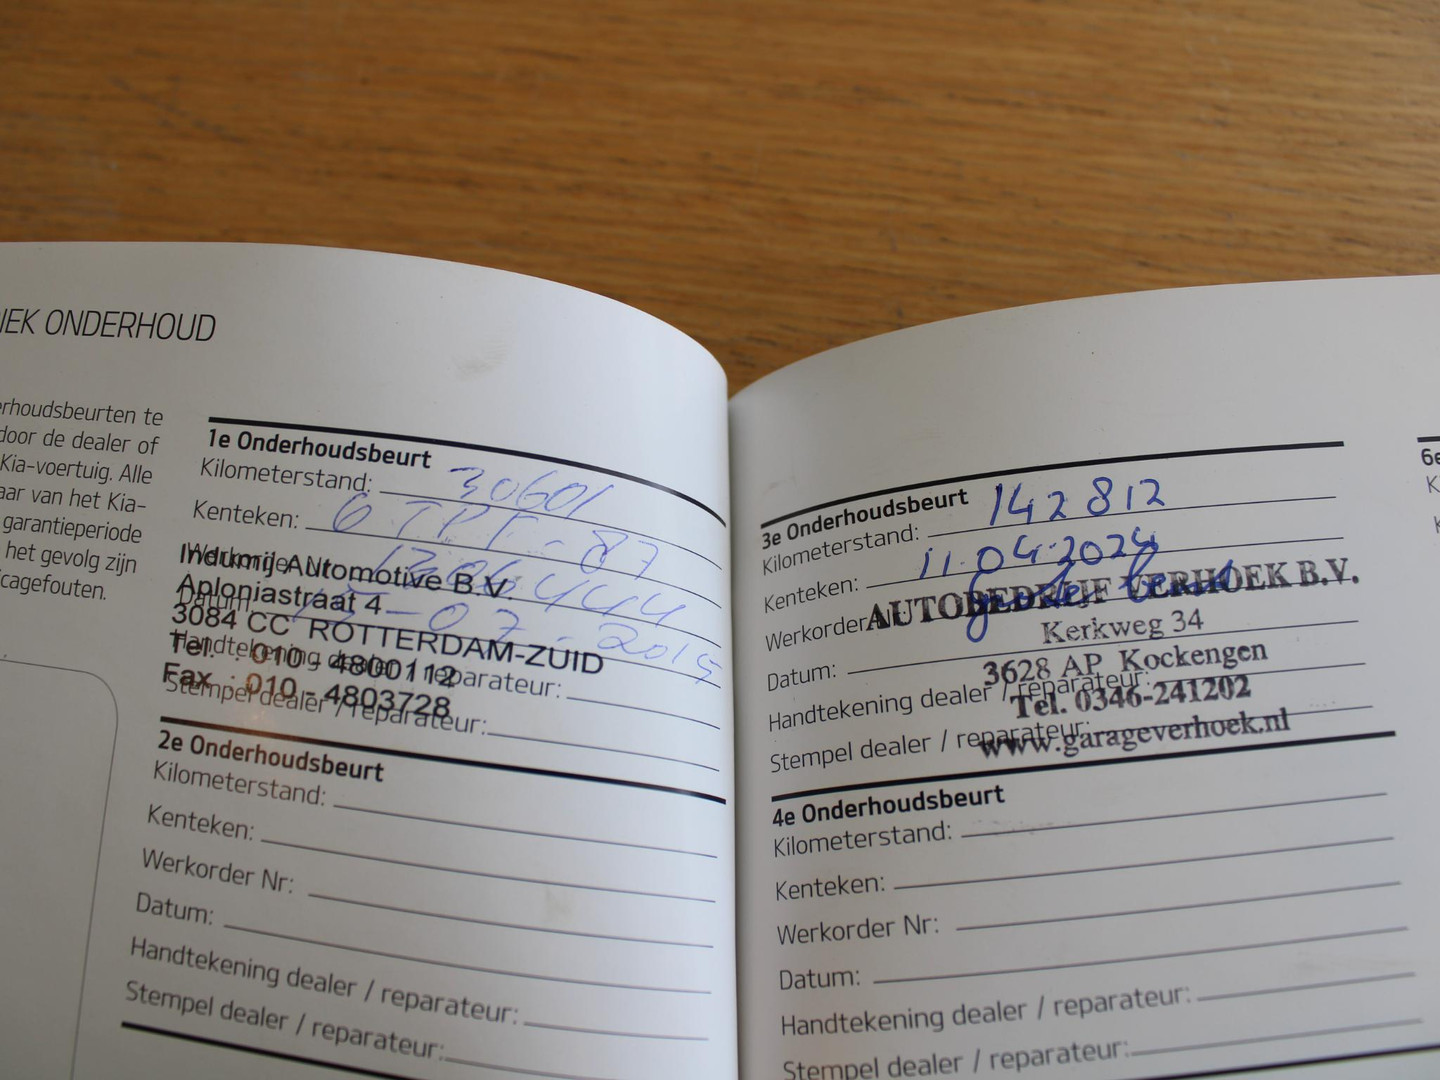 IEK ONDERHOUD
erhoudsbeurten te
door de dealer of
Kia-voertuig. Alle
aar van het Kia-
garantieperiode
het gevolg zijn
cagefouten.
1e Onderhoudsbeurt
Kilometerstand: 30601
Kenteken: 6 TPF-87
Werkorder Nr:
Datum: -07-2015
Handtekening dealer / reparateur:
Stempel dealer / reparateur:
Indumij Automotive B.V.
Aploniastraat 4
3084 CC ROTTERDAM-ZUID
Tel. : 010 - 4800112
Fax : 010 - 4803728
2e Onderhoudsbeurt
Kilometerstand:
Kenteken:
Werkorder Nr:
Datum:
Handtekening dealer / reparateur:
Stempel dealer / reparateur:
3e Onderhoudsbeurt
Kilometerstand: 142812
Kenteken: 11.04.2024
Werkorder
Datum:
Handtekening dealer / reparateur:
Stempel dealer / reparateur:
AUTOBEDRIJF VERHOEK B.V.
Kerkweg 34
3628 AP Kockengen
Tel. 0346-241202
www.garageverhoek.nl
4e Onderhoudsbeurt
Kilometerstand:
Kenteken:
Werkorder Nr:
Datum:
Handtekening dealer / reparateur:
Stempel dealer / reparateur:
6e
K